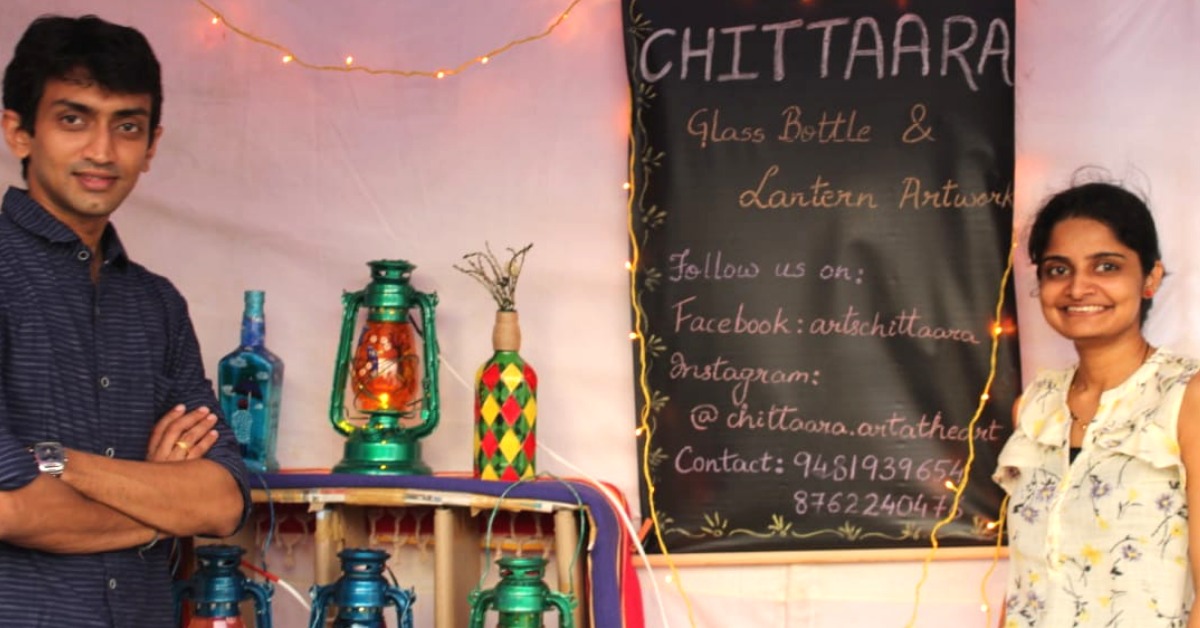 CHITTAARA
Glass Bottle &
Lantern Artwork
Follow us on:
Facebook: artschittaara
Instagram:
@chittaara.artatheart
Contact: 9481939654